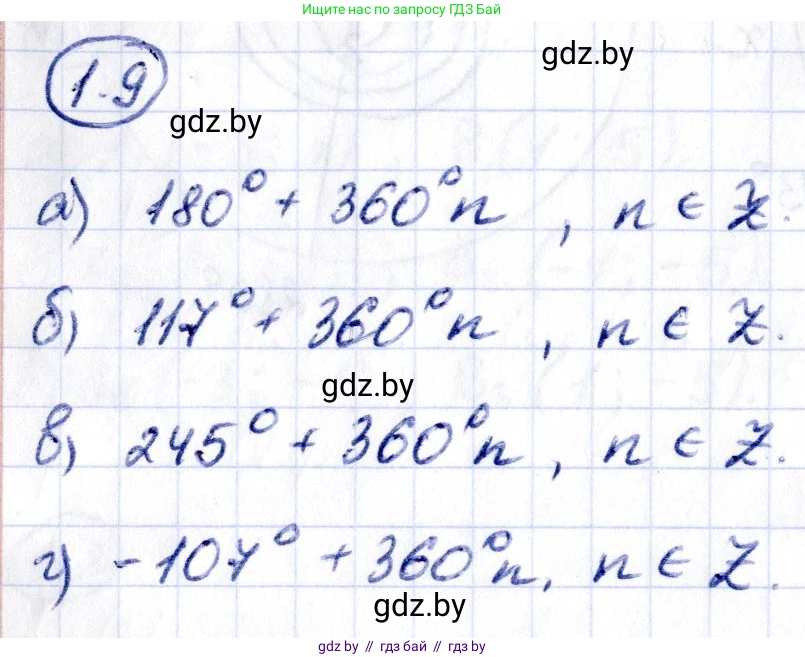 Ищите нас по запросу ГДЗ Бай
1.9
gdz.by
gdz.by
а) 180° + 360°n , n ∈ Z.
б) 117° + 360°n , n ∈ Z.
gdz.by
в) 245° + 360°n , n ∈ Z.
г) -107° + 360°n, n ∈ Z.
gdz.by
gdz.by // гдз бай // gdz.by